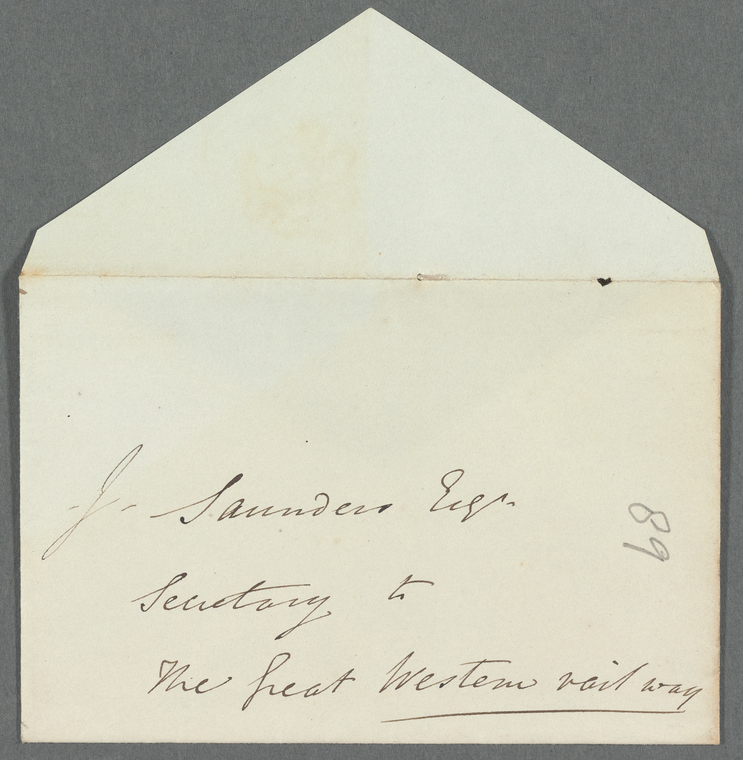 J. Saunders Esqr
Secretary to
The Great Western railway
89